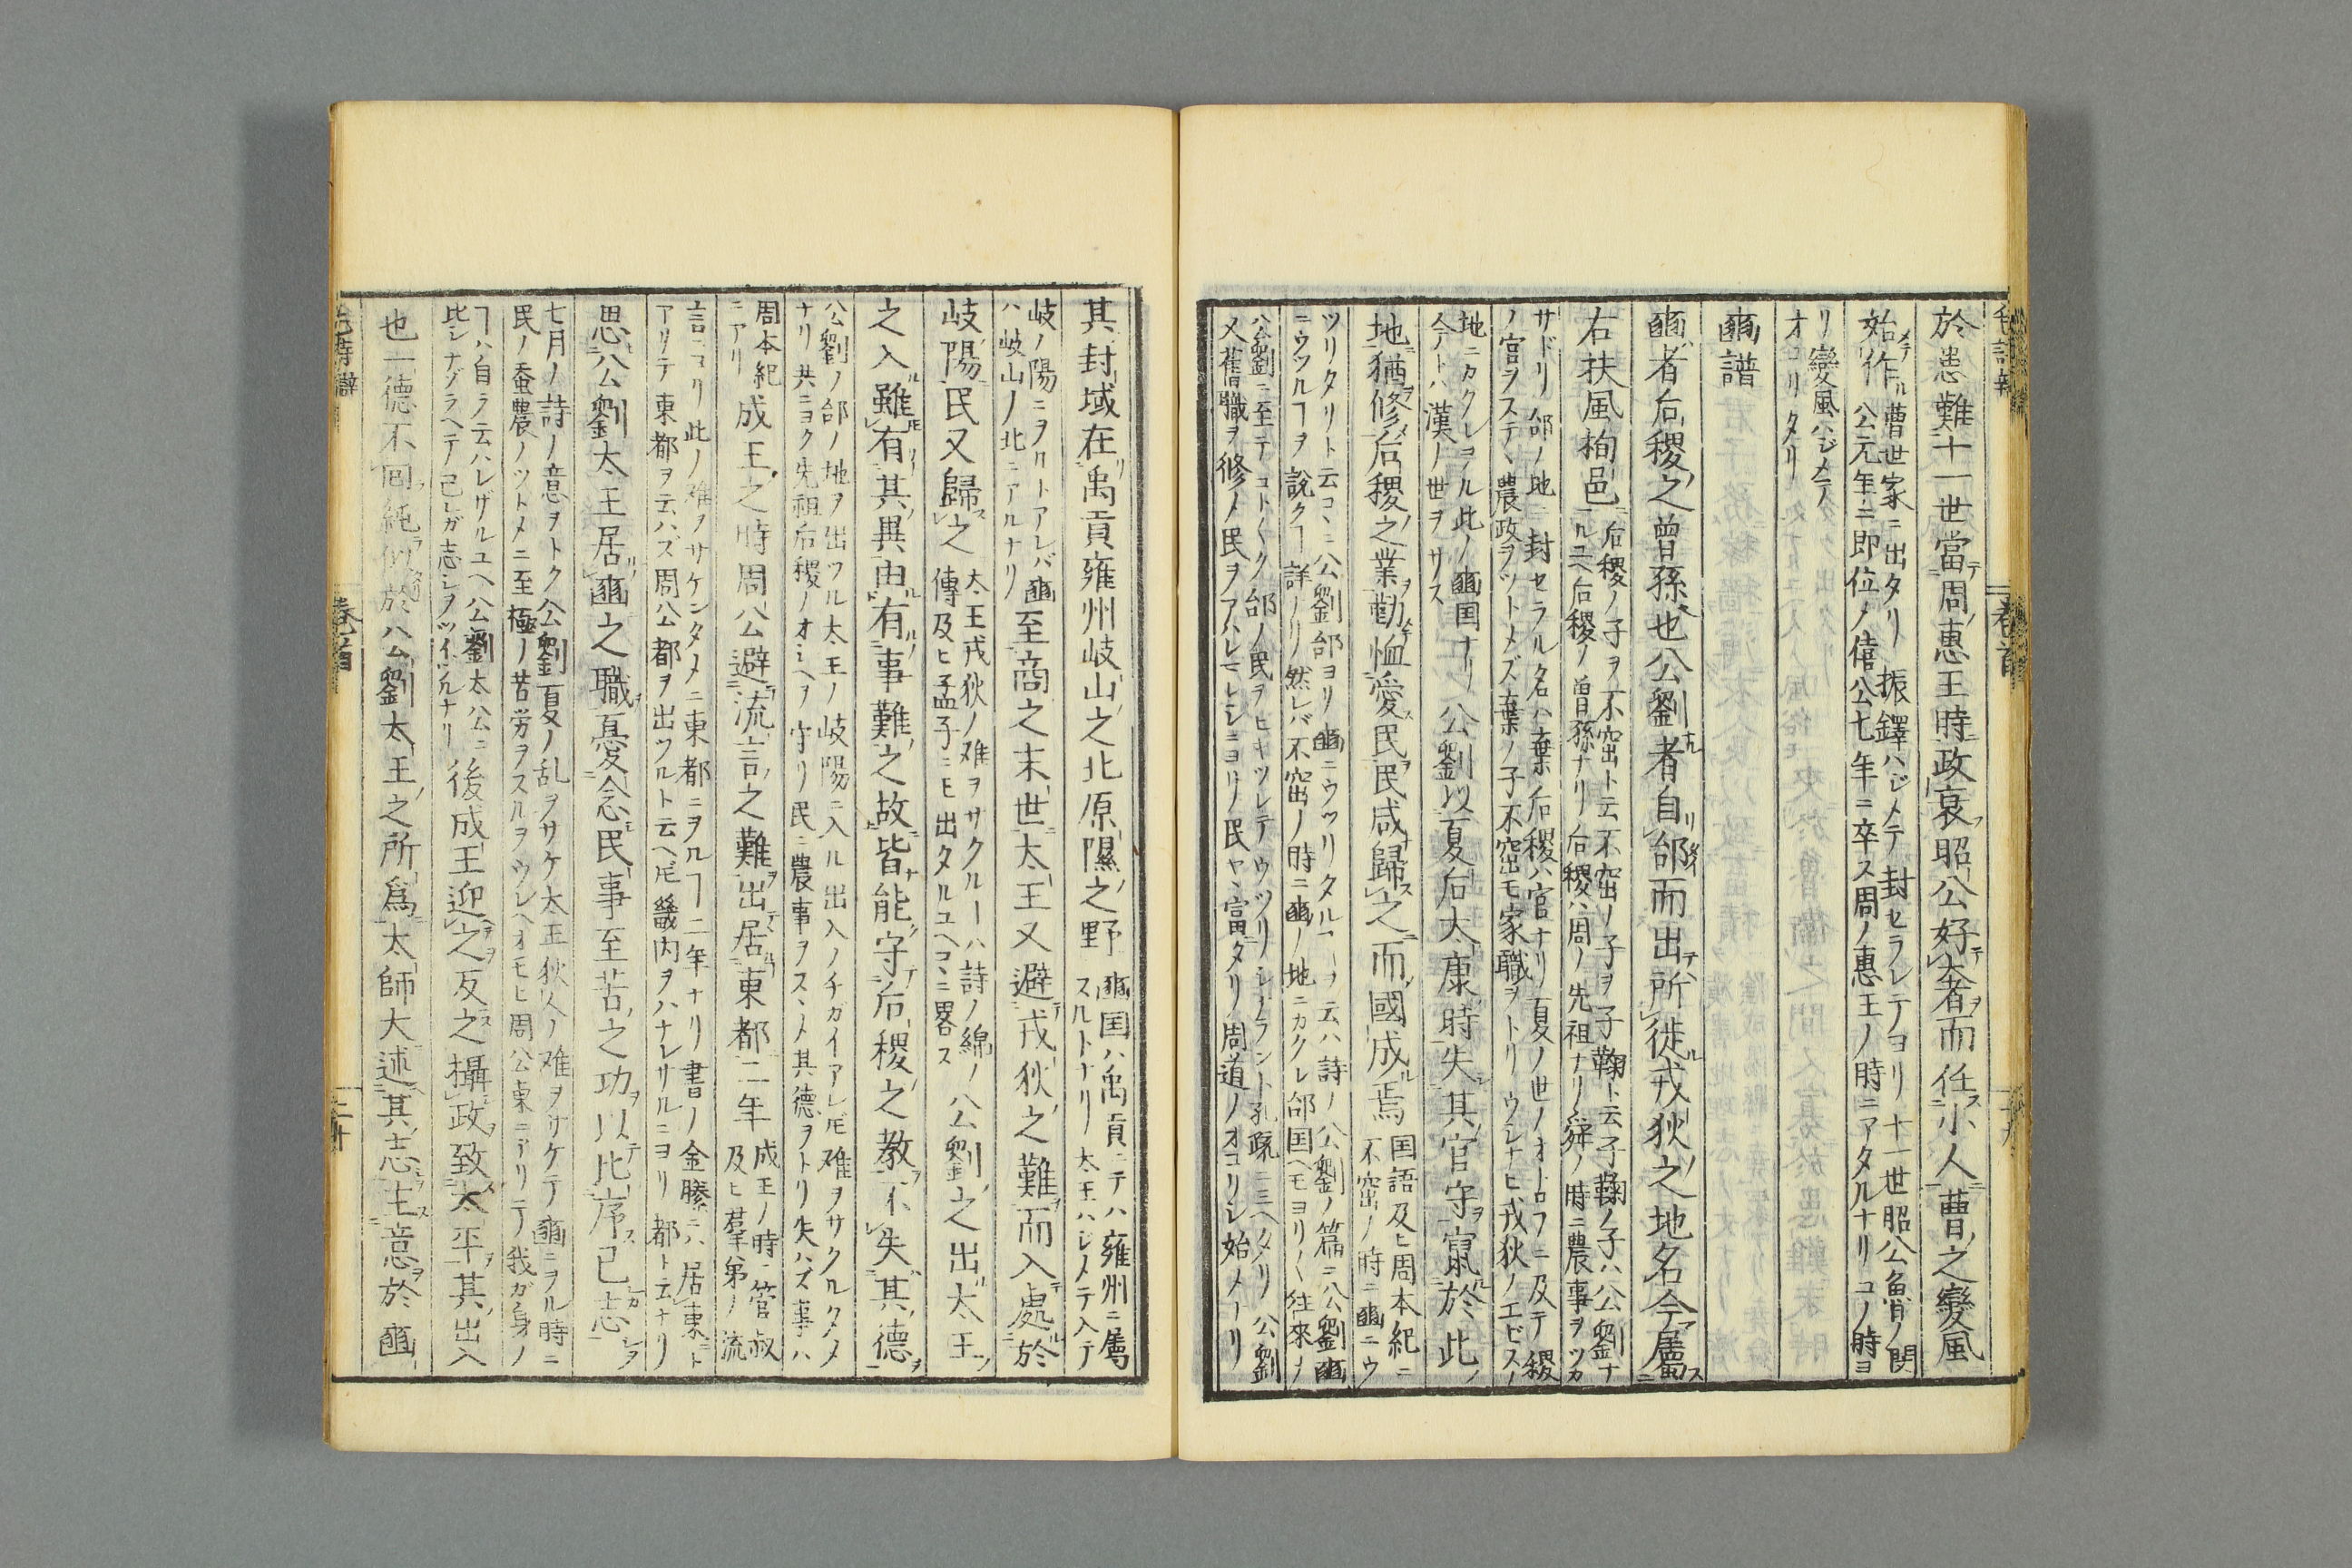 於患難十一世當周惠王時政衰昭公好奢而任小人曹之變風
始作 曹世家ニ出タリ 振鐸ハジメテ封セラレテヨリ十一世昭公魯ノ閔
公元年ニ即位ノ僖公七年ニ卒ス周ノ惠王ノ時ニアタルナリコノ時ヨ
リ變風ハジメテ
オコリタリ
豳譜
豳者后稷之曾孫也公劉者自邰而出所徙戎狄之地名今屬
右扶風栒邑 后稷ノ子ヲ不窋ト云不窋ノ子ヲ子鞠ト云子鞠ノ子ハ公劉ナ
ルユヘ后稷ノ曽孫ナリ后稷ハ周ノ先祖ナリ舜ノ時ニ農事ヲツカ
サドリ邰ノ地ニ封セラル名ハ棄后稷ハ官ナリ夏ノ世ノオトロフニ及テ稷
ノ官ヲステヽ農政ヲツトメズ棄ノ子不窋モ家職ヲトリウシナヒ戎狄ノエビスノ
地ニカクレヲル此ノ豳国ナリ
今ノトハ漢ノ世ヲサス 公劉以夏后太康時失其官守竄於此
地猶修后稷之業勤恤愛民民咸歸之而國成焉 国語及ヒ周本紀ニ
不窋ノ時ニ豳ニウ
ツリタリト云コヽニ公劉邰ヨリ豳ニウツリタルヿヲ云ハ詩ノ公劉ノ篇ニ公劉豳
ニウツルヿヲ説クヿ詳ノリ然レバ不窋ノ時ニ豳ノ地ニカクレ邰国ヘモヨリ〱往來ノ
公劉ニ至テコト〱ク邰ノ民ヲヒキツレテウツリシナラント孔疏ニミヘタリ 公劉
又舊職ヲ修メ民ヲアハレマレシニヨリ民ヤヽ富タリ周道ノオコリシ始メナリ
其封域在禹貢雍州岐山之北原隰之野 豳国ハ禹貢ニテハ雍州ニ屬
スルトナリ太王ハジメテ入テ
岐ノ陽ニヲルトアレバ豳
ハ岐山ノ北ニアルナリ 至商之末世太王又避戎狄之難而入處於
岐陽民又歸之 太王戎狄ノ难ヲサクルヿハ詩ノ綿ノ
傳及ヒ孟子ニモ出タルユヘコヽニ畧ス 公劉之出太王
之入雖有其異由有事難之故皆能守后稷之教不失其德
公劉ノ邰ノ地ヲ出ツル太王ノ岐陽ニ入ル出入ノチガイアレ𪜈难ヲサクルタメ
ナリ共ニヨク先祖后稷ノオシヘヲ守リ民ニ農事ヲスヽメ其德ヲトリ失ハズ事ハ
周本紀
ニアリ 成王之時周公避流言之難出居東都二年 成王ノ時ニ管叔
及ヒ羣弟ノ流
言ニヨリ此ノ难ヲサケンタメニ東都ニヲルヿ二年ナリ書ノ金縢ニハ居東ト
アリテ東都ヲ云ハズ周公都ヲ出ツルト云ヘ𪜈畿内ヲハナレサルニヨリ都ト云ナリ
思公劉太王居豳之職憂念民事至苦之功以比序己志
七月ノ詩ノ意ヲトク公劉夏ノ乱ヲサケ太王狄人ノ难ヲサケテ豳ニヲル時ニ
民ノ蚕農ノツトメニ至極ノ苦労ヲスルヲウレヘオモヒ周公東ニアリテ我ガ身ノ
ヿハ自ラ云ハレザルユヘ公劉太公ニ
比シナゾラヘテ己レガ志シヲツイヅルナリ 後成王迎之反之攝政致太平其出入
也一德不回純似於公劉太王之所爲太師大述其志主意於豳
毛詩辯 卷首 二十